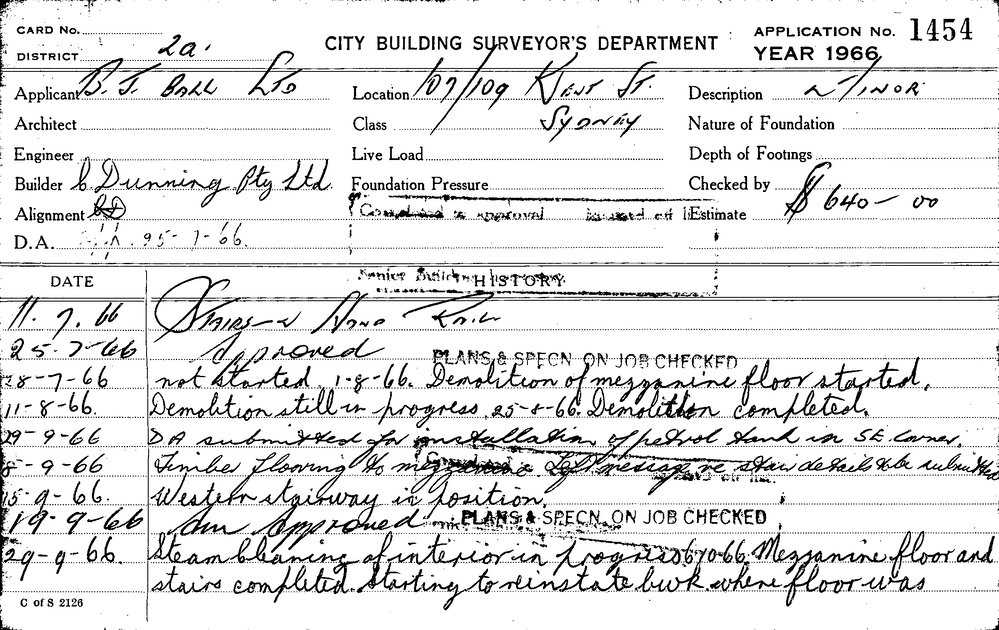 CARD No.
DISTRICT 2a.
CITY BUILDING SURVEYOR'S DEPARTMENT
APPLICATION No. 1454
YEAR 1966
Applicant B. J. BALL LTD Location 107/109 KENT ST. Description MINOR
Architect Class SYDNEY Nature of Foundation
Engineer Live Load Depth of Footings
Builder C Dunning Pty Ltd. Foundation Pressure Checked by
Alignment Estimate $ 640-00
D.A. 25-7-66.
DATE HISTORY
11.7.66 STAIRS
25-7-66 Approved PLANS & SPECN ON JOB CHECKED
28-7-66 not started. 1-8-66. Demolition of mezzanine floor started.
11-8-66. Demolition still in progress. 25-8-66. Demolition completed.
29-9-66 DA submitted for installation of petrol tank in SE corner.
8-9-66 Timber flooring to Left message re stair details to be submitted
15-9-66. Western stairway in position.
19-9-66 Am Approved PLANS & SPECN. ON JOB CHECKED
29-9-66. Steam cleaning of interior in progress. 6-10-66. Mezzanine floor and
stairs completed. Starting to reinstate bwk. where floor was
C of S 2126